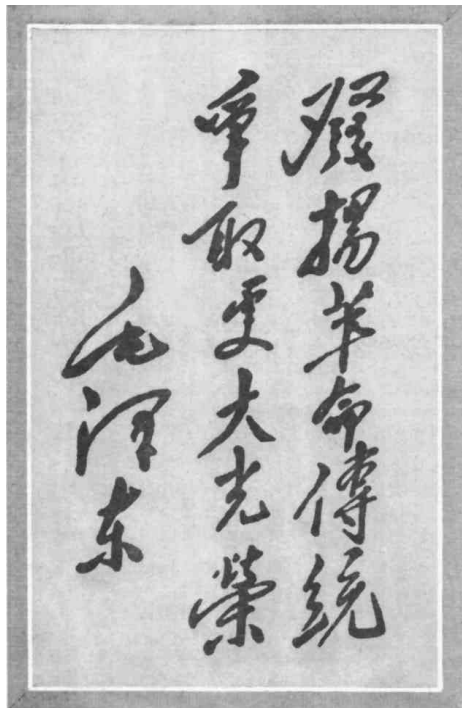 發揚革命傳統
爭取更大光榮
毛泽东